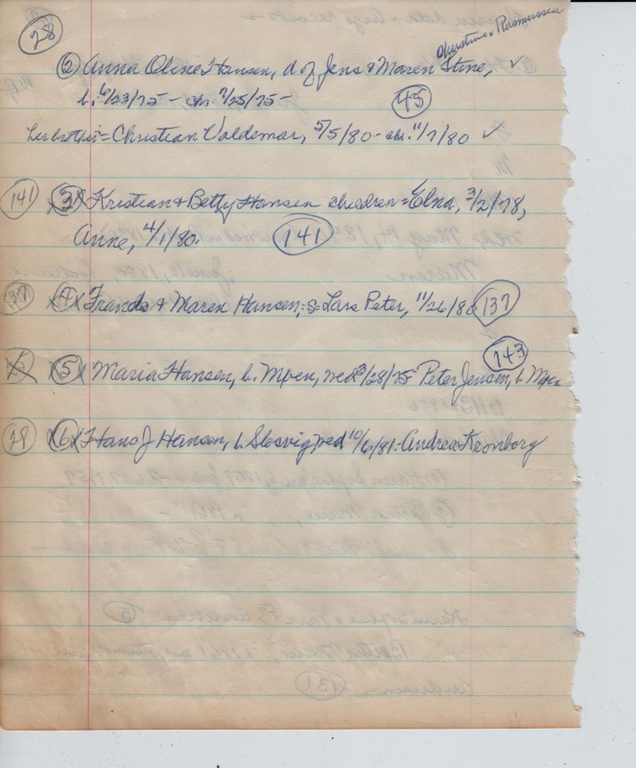 28
Christine & Rasmussen
② Anna Oline Hansen, d. of Jens & Maren Stine, ✓
b. 6/23/75 - chr. 7/25/75 - 45
her brother = Christian Valdemar, 5/5/80 - chr. 11/7/80 ✓
141 X3X Kristian & Betty Hansen children = Elna, 3/2/78,
Anne, 4/1/80. 141
137 X4X Frands & Maren Hansen, : s. Lars Peter, 11/26/80 137
143
X5X Maria Hansen, b. Mpen, wed 3/28/75 - Peter Jensen, b. Mpen
28 X6X Hans J Hansen, b. Slesvig, wed 10/6/81 - Andrea Kronborg